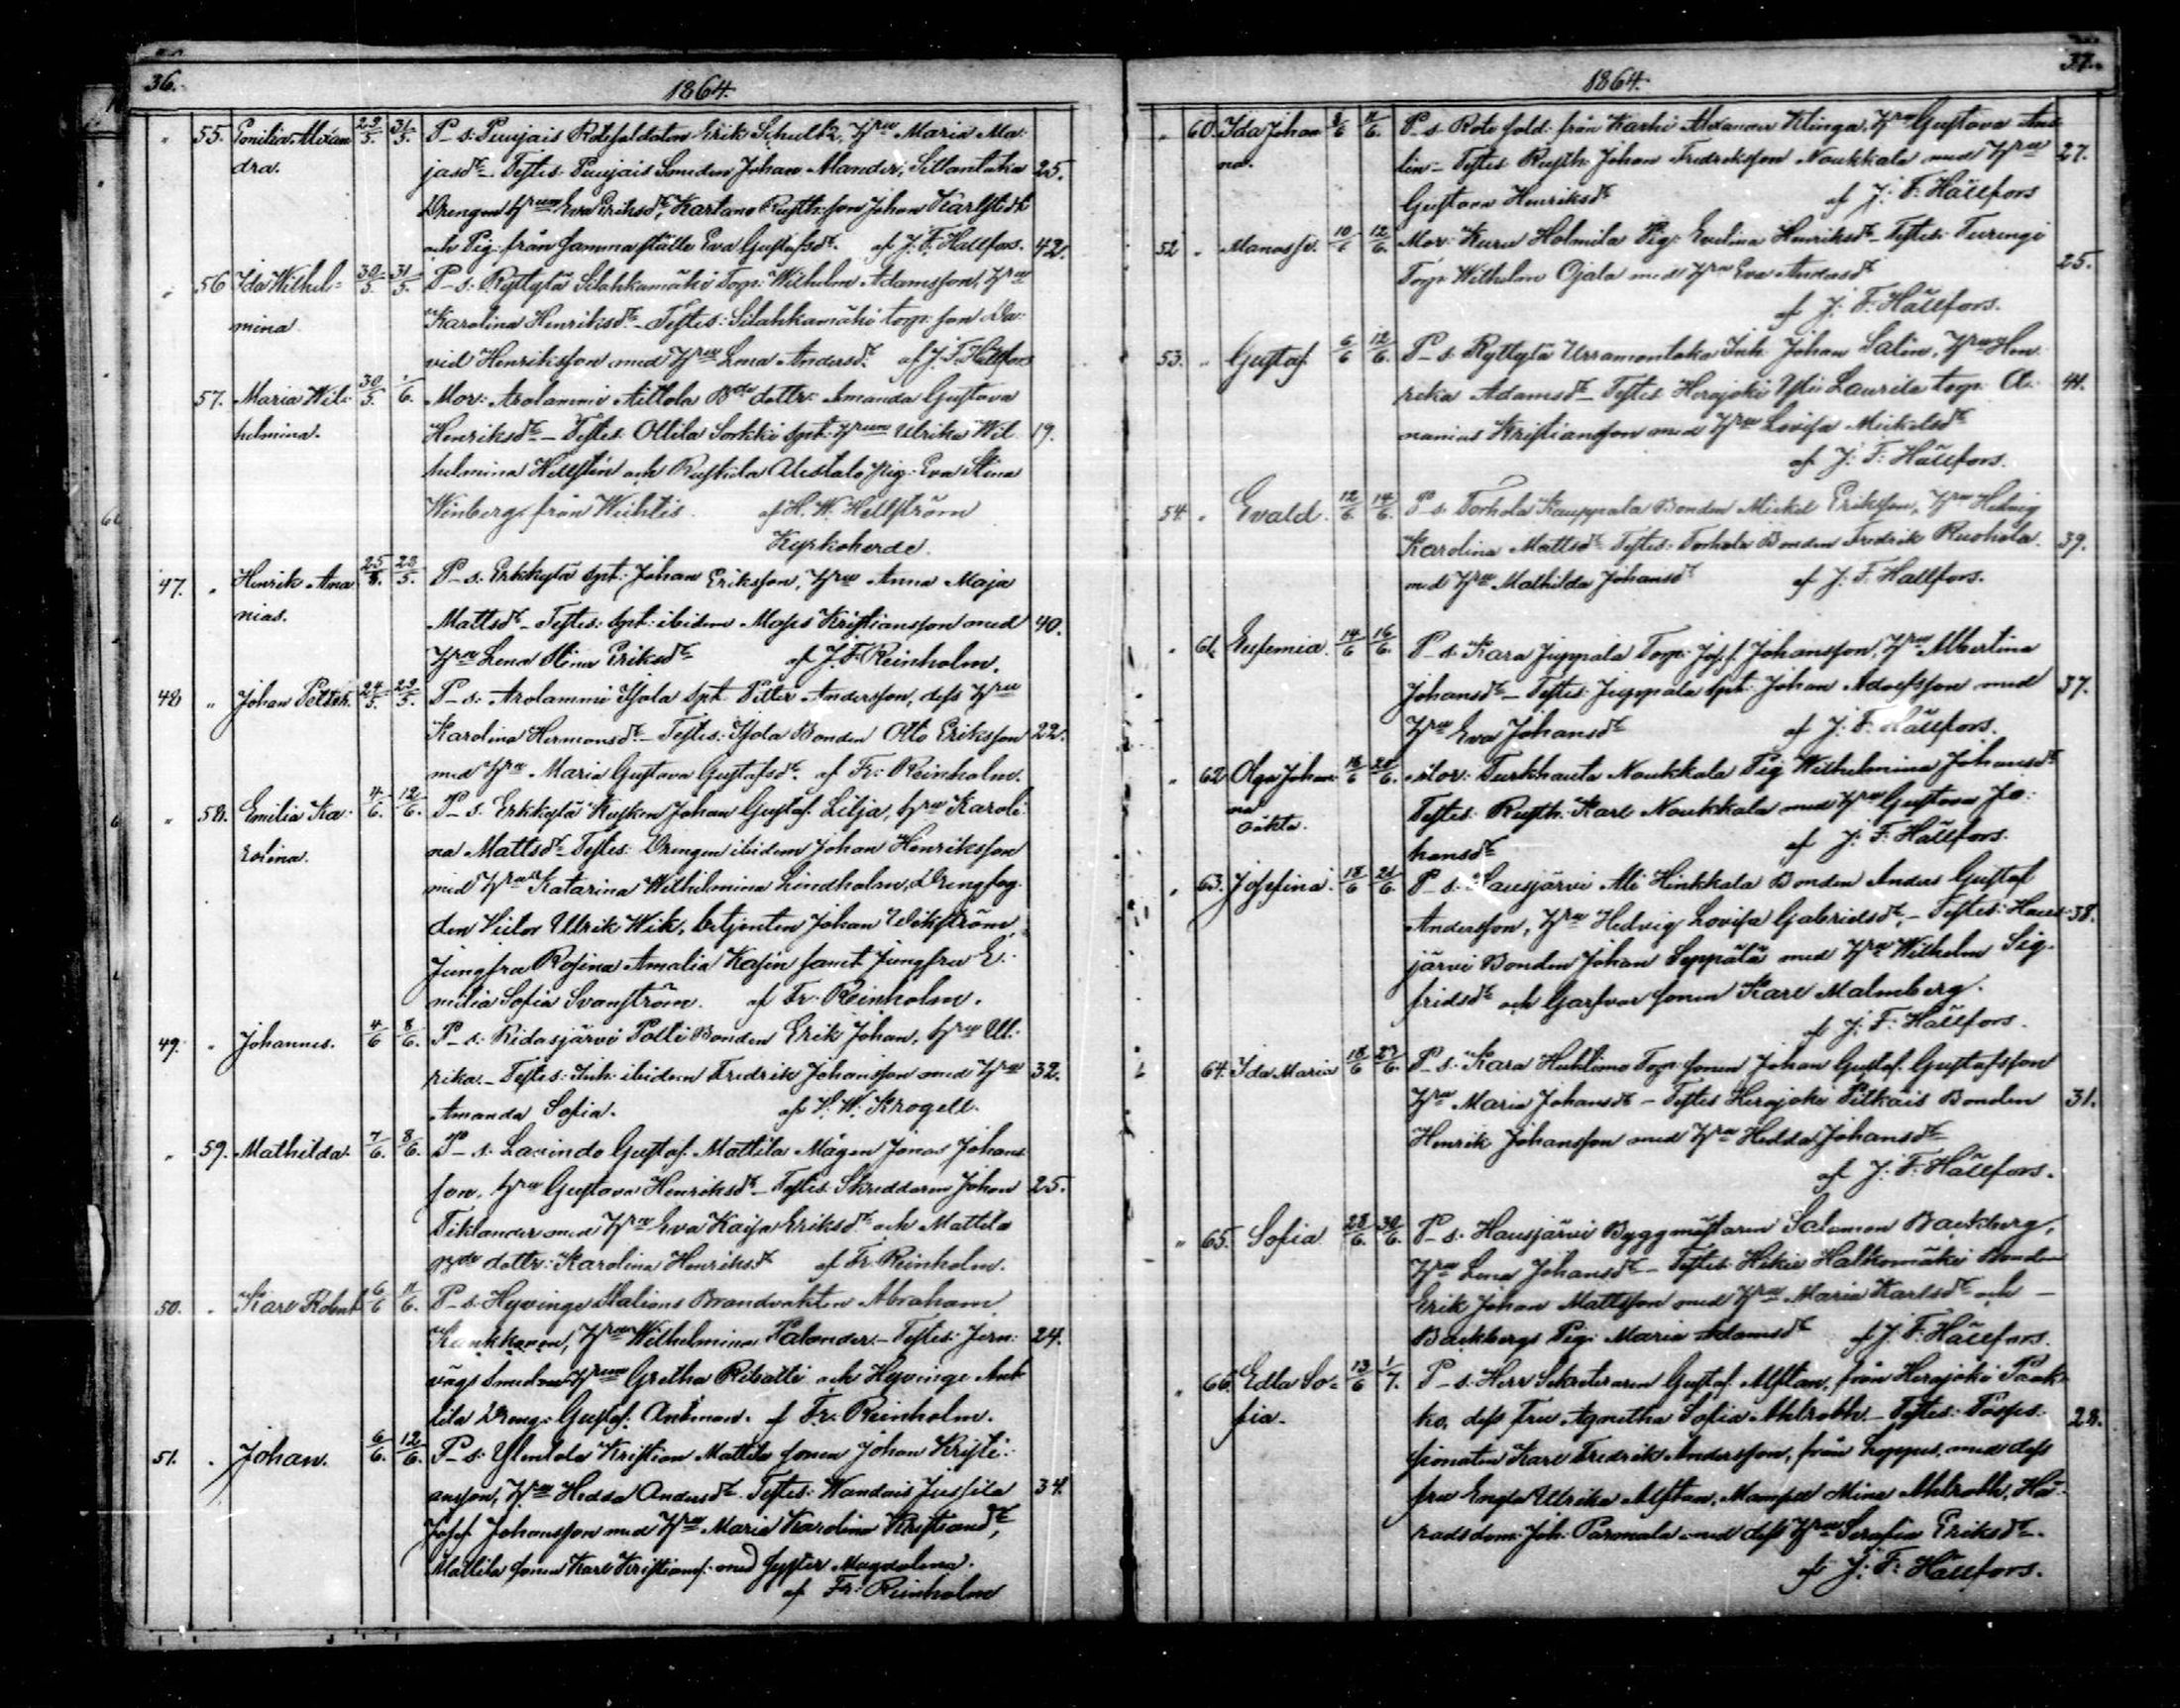 36.
1864.
" 55. Emilia Alexan 29/5. 31/5. P_s. Puujais Rotesoldaten Erik Schultz, Hru Maria Ma:
dra. jasdr _ Testes: Puujais Smeden Johan Mander, Sillantaka 25.
Drengen hrun Eva Eriksdr, Kartano Rusth: son Johan Karlstedt
och Pig: från samma ställe Eva Gustafsdr. af J. F. Hällfors. 42.
" 56 Ida Wilhel= 30/5. 31/5. P_s. Ryttylä Silahkamäki Torp: Wilhelm Adamsson, Hru
mina. Karolina Henriksdr _ Testes: Silahkamäki torp: son Da:
vid Henriksson med Hru Lena Andersdr. af J. F. Hällfors
57. Maria Wil: 30/5. 1/6. Mor: Arolammi Aittola Bde dottr: Amanda Gustava
helmina. Henriksdr _ Testes: Ollila Sorkki Spt: hrun Ulrika Wil 19.
helmina Hellstén och Alastalo Pig: Eva Stina
Winberg från Wichtis. af H. W. Hellström
Kyrkoherde.
47. " Henrik Ana 25/5. 28/5. P_s. Erkkylä Spt: Johan Eriksson, Hru Anna Maja
nias. Mattsdr _ Testes: Spt: ibidem Moses Kristiansson med 40.
Hru Lena Stina Eriksdr af J. F. Reinholm.
48 " Johan Petter. 24/5. 29/5. P_s. Arolammi Isola Spt: Petter Andersson, dess Hru
Karolina Hermansdr _ Testes: Isola Bonden Otto Eriksson 22.
med Hru Maria Gustava Gustafsdr. af Fr: Reinholm.
" 58. Emilia Ka: 4/6. 12/6. P_s. Erkkylä Kusken Johan Gustaf Lilja, hru Karoli
rolina. na Mattsdr _ Testes: Drengen ibidem Johan Henriksson
med Hru Katarina Wilhelmina Lindholm, Drengfog:
den Victor Ulrik Wik, betjenten Johan Wikström,
Jungfru Rosina Amalia Kasin samt Jungfru E:
milia Sofia Svanström. af Fr: Reinholm.
49. " Johannes. 4/6 8/6. P_s. Ridasjärvi Polli Bonden Erik Johan, hru Ul:
rika. _ Testes: Inh: ibidem Fredrik Johansson med Hru 32.
Amanda Sofia. af V. W. Krogell.
" 59. Mathilda. 7/6. 8/6. P_s. Gustaf Mattila Mågen Jonas Johans
son, hru Gustava Henriksdr _ Testes: Skreddaren Johan 25.
Tiklander med Hru Eva Kaisa Eriksdr och Mattila
Bde dottr: Karolina Henriksdr af Fr. Reinholm.
50. " Karl Robert 6/6 11/6. P_s. Hyvinge Stations Brandvakten Abraham
Kankkonen, Hru Wilhelmina Palander _ Testes: Jern: 24.
vägs Smeden Hrun Gretha och Hyvinge Ant
tila Dreng: Gustaf Antman. af Fr: Reinholm.
51. . Johan. 6/6. 12/6. P_s. Ylentola Kristian Mattila sonen Johan Kristi:
ansson, Hru Hedda Andersdr. Testes: Wandais Jussila 34.
Josef Johansson med Hru Maria Karolina Kristiansdr,
Mattila sonen Karl Kristianss: med Syster Magdalena.
af Fr: Reinholm
37.
1864.
" 60. Ida Johan 8/6 11/6. P_s. Rote sold: från Karhi Alexander Klinga, Hru Gustava
na. lin _ Testes Rusth: Johan Fredriksson Noukkala med Hru 27.
Gustava Henriksdr af J. F. Hällfors
52 " Manasse. 10/6 12/6. Mor: Kuru Holmila Pig: Evelina Henriksdr _ Testes: Turengi
Torp: Wilhelm Ojala med Hru Eva Andersdr 25.
af J. F. Hällfors.
53. " Gustaf. 6/6 12/6. P_s. Ryttylä Inh. Johan Salin, Hru Hen
rika Adamsdr _ Testes Herajoki Yli Laurila torp: A: 44.
nanias Kristiansson med Hru Lovisa Mickelsdr
af J. F. Hällfors.
54. " Evald. 12/6. 14/6. P_s. Torhola Kauppala Bonden Mickel Eriksson, Hru Hedvig
Karolina Mattsdr. Testes: Torhola Bonden Fredrik Ruohola. 39.
med Hru Mathilda Johansdr af J. F. Hällfors.
" 61. Eufemia. 14/6 16/6. P_s. Kara Juppala Torp: Josef Johansson, Hru Albertina
Johansdr _ Testes: Juppala Spt: Johan Adolfsson med 37.
Hru Eva Johansdr af J. F. Hällfors.
" 62. Olga Johan: 16/6 20/6. Mor: Turkhauta Noukkala Pig Wilhelmina Johansdr
na Testes: Rusth: Karl Noukkala med Hru Gustava Jo:
oäkta. hansdr af J. F. Hällfors.
" 63. Josefina. 18/6 21/6. P_s. Hausjärvi Ali Hinkkala Bonden Anders Gustaf
Andersson, Hru Hedvig Lovisa Gabrielsdr, _ Testes: Haus: 38.
järvi Bonden Johan Seppälä med Hru Wilhelm Sig:
fridsdr och Garfvar sonen Karl Malmberg.
af J. F. Hällfors.
64. Ida Maria 18/6 27/6. P_s. Kara Huhtimo Torp: sonen Johan Gustaf Gustafsson
Hru Maria Johansdr _ Testes Herajoki Pelkais Bonden 31.
Henrik Johansson med Hru Hedda Johansdr
af J. F. Hällfors.
" 65. Sofia 28/6. 30/6. P_s. Hausjärvi Byggmästaren Salomon Backberg,
Hru Lena Johansdr _ Testes: Hikiä Halkomäki Bonden
Erik Johan Mattsson med Hru Maria Karlsdr och _
Backbergs Pig: Maria Adamsdr af J. F. Hällfors.
" 66. Edla So= 13/6 1/7. P_s. Herr Sekreteraren Gustaf Alftan, från Herajoki Paak
fia. ko, dess Fru Agnetha Sofia Ahlroth _ Testes: Posses: 28.
sionaten Karl Fredrik Andersson, från Loppis, med dess
fru Engla Ulrika Alftan, Mamsell Mina Ahlroth, Hä:
radsdom: Joh: Parmala med dess Hru Serafia Eriksdr.
af J. F. Hällfors.